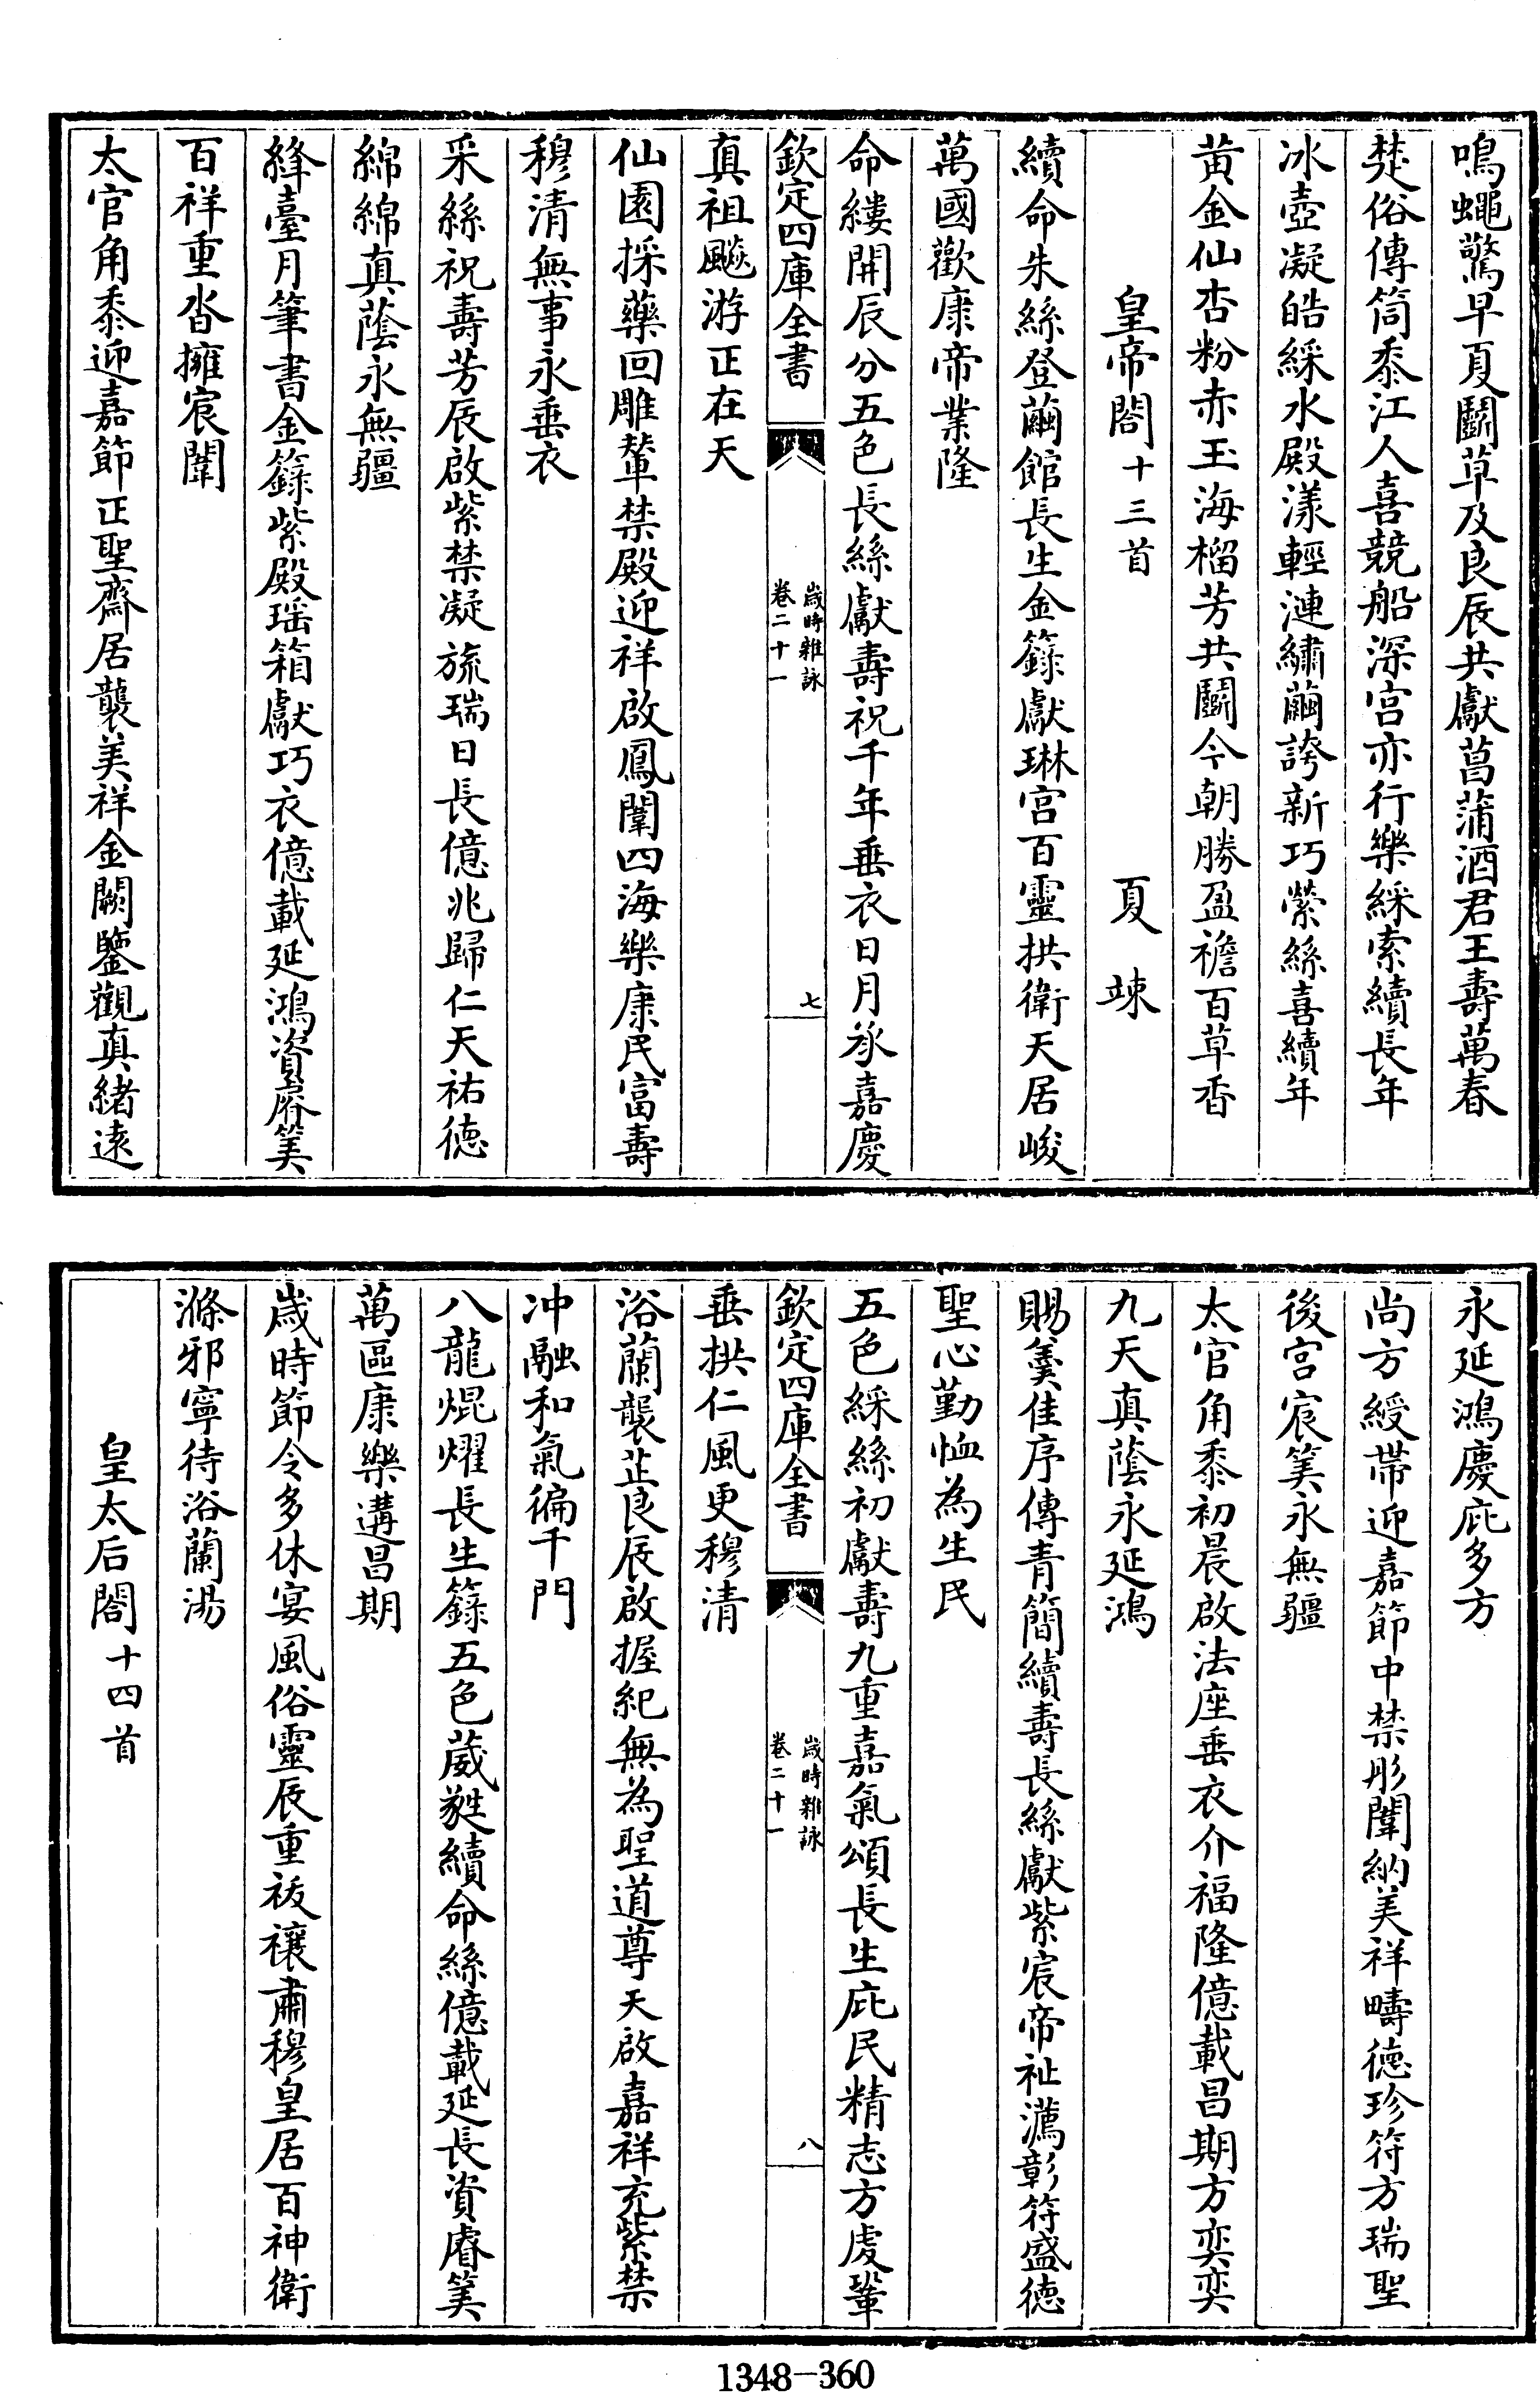 鳴蜩驚早夏鬭草及良辰共獻菖蒲酒君王壽萬春
楚俗傳筒黍江人喜競船深宫亦行樂綵索續長年
冰壺凝皓綵水殿漾輕漣繡繭誇新巧縈絲喜續年
黄金仙杏粉赤玉海榴芳共鬭今朝勝盈襜百草香
皇帝閤十三首 夏竦
續命朱絲登繭館長生金籙獻琳宫百靈拱衛天居峻
萬國歡康帝業隆
命縷開辰分五色長絲獻壽祝千年垂衣日月承嘉慶
欽定四庫全書 歲時雜詠 卷二十一 七
真祖飈游正在天
仙園採藥回雕輦禁殿迎祥啟鳳闈四海樂康民富壽
穆清無事永垂衣
采絲祝壽芳辰啟紫禁凝旒瑞日長億兆歸仁天祐徳
綿綿真蔭永無疆
絳臺月筆書金籙紫殿瑶箱獻巧衣億載延鴻資睿筭
百祥重沓擁宸闈
太官角黍迎嘉節正聖齋居襲美祥金闕鑒觀真緒逺
永延鴻慶庇多方
尚方綬帶迎嘉節中禁彤闈納美祥疇徳珍符方瑞聖
後宫宸筭永無疆
太官角黍初晨啟法座垂衣介福隆億載昌期方奕奕
九天真蔭永延鴻
賜羹佳序傳青簡續壽長絲獻紫宸帝祉濳彰符盛徳
聖心勤恤為生民
五色綵絲初獻壽九重嘉氣頌長生庇民精志方虔鞏
欽定四庫全書 歲時雜詠 卷二十一 八
垂拱仁風更穆清
浴蘭襲芷良辰啟握紀無為聖道尊天啟嘉祥充紫禁
冲融和氣徧千門
八龍焜燿長生籙五色葳蕤續命絲億載延長資睿筭
萬區康樂遘昌期
歲時節令多休宴風俗靈辰重祓禳肅穆皇居百神衛
滌邪寧待浴蘭湯
皇太后閤十四首
1348-360